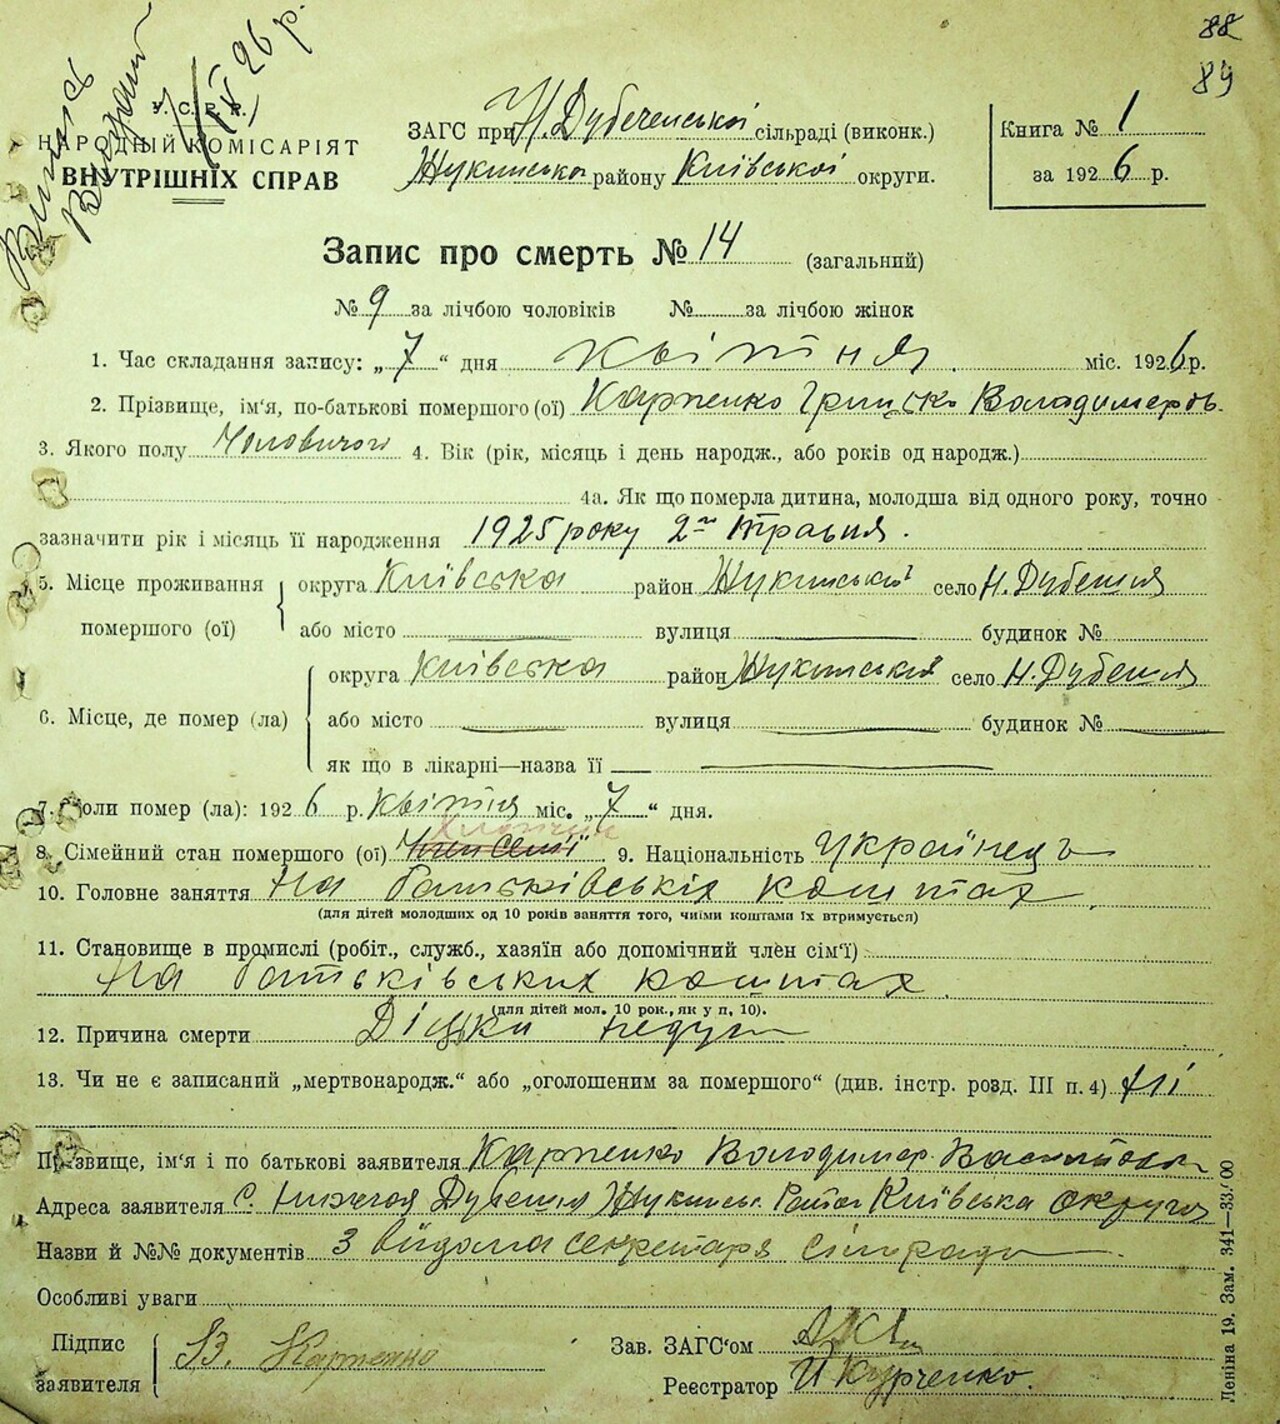 88
89
Випись
Видано
IV 26 р.
У.С.Р.Р.
НАРОДНІЙ КОМІСАРІЯТ
ВНУТРІШНІХ СПРАВ
ЗАГС при Н. Дубеченської сільраді (виконк.)
Жукинсько району Київської округи.
Книга № 1
за 1926 р.
Запис про смерть № 14 (загальний)
№ 9 за лічбою чоловіків № за лічбою жінок
1. Час складання запису: „7“ дня квітня міс. 1926 р.
2. Прізвище, ім'я, по-батькові помершого (ої) Карпенко Грицько Володимеров.
3. Якого полу Чоловичого 4. Вік (рік, місяць і день народж., або років од народж.)
4а. Як що померла дитина, молодша від одного року, точно
зазначити рік і місяць її народження 1925 року 2го травня.
5. Місце проживання помершого (ої) округа Київська район Жукинський село Н. Дубечня
або місто вулиця будинок №
6. Місце, де помер (ла) округа Київська район Жукинський село Н. Дубечня
або місто вулиця будинок №
як що в лікарні—назва її
7. Коли помер (ла): 1926 р. квітня міс. „7“ дня.
8. Сімейний стан помершого (ої) Член семї 9. Національність Українець
10. Головне заняття На батьківскіх коштах.
(для дітей молодших од 10 років заняття того, чиїми коштами їх втримується)
11. Становище в промислі (робіт., служб., хазяїн або допомічний член сім'ї)
На батьківських коштах.
(для дітей мол. 10 рок., як у п. 10).
12. Причина смерти недуг
13. Чи не є записаний „мертвонародж.“ або „оголошеним за помершого“ (див. інстр. розд. III п. 4) Ні
Прізвище, ім'я і по батькові заявителя Карпенко Володимер
Адреса заявителя С. Нижчая Дубечня Жукинськ. Район Київська округа
Назви й №№ документів З відома секретаря сільради
Особливі уваги
Підпис заявителя В. Карпенко
Зав. ЗАГС'ом
Реєстратор И Курченко.
Леніна 19. Зам. 341—33.00